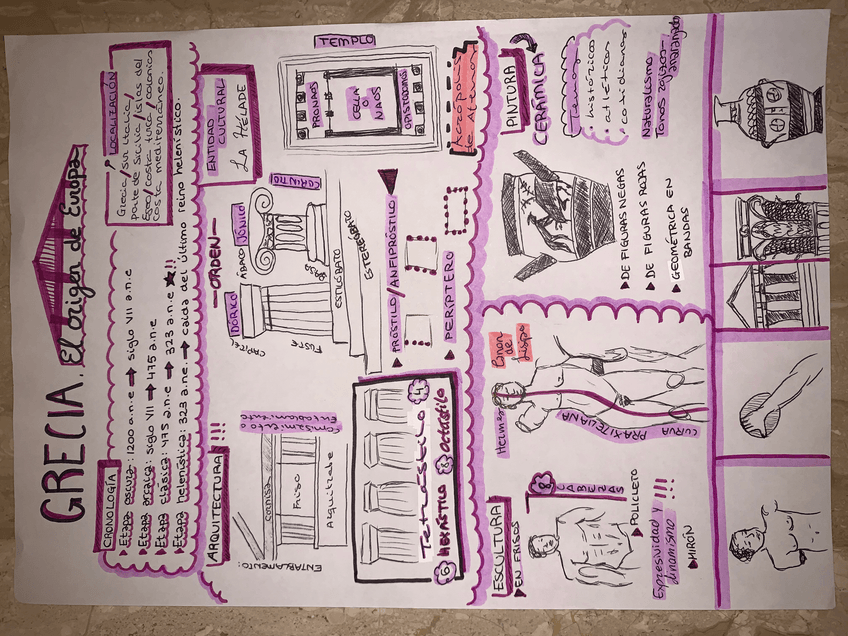 GRECIA, El origen de Europa
CRONOLOGÍA
Etapa oscura: 1200 a.n.e → siglo VII a.n.e
Etapa arcaica: siglo VII → 475 a.n.e
Etapa clásica: 475 a.n.e → 323 a.n.e ★!!
Etapa helenística: 323 a.ne. → caída del último reino helenístico.
LOCALIZACIÓN
Grecia/sur Italia/
parte de Sicilia/islas del
Egeo/costa turca/colonias
costa mediterránea.
ARQUITECTURA!!!
ENTIDAD
CULTURAL
LA HÉLADE
ENTABLAMENTO:
cornisa
Friso
Arquitrabe
Cornisamiento o
Entablamiento
4 Tetrástilo
6 HEXÁSTILO 8 octástilo
—ORDEN—
DÓRICO
CAPITEL
FUSTE
ÁBACO
JÓNICO
CORINTIO
BASA
ESTILÓBATO
ESTEREÓBATO
PRÓSTILO/ANFIPRÓSTILO
PERÍPTERO
TEMPLO
PRONAOS
CELLA
O
NAOS
OPISTODOMOS
Acrópolis
de Atenas
ESCULTURA
EN FRISOS
8 CABEZAS
POLICLETO
Expresividad y
dinamismo !!!
MIRÓN
Hermes
Canon
de
Lisipo
CURVA PRAXITELIANA
PINTURA
CERÁMICA
Temas
históricos
atléticos
cotidianos
Naturalismo
Tonos rojizos-
anaranjados
DE FIGURAS NEGAS
DE FIGURAS ROJAS
GEOMÉTRICA EN
BANDAS